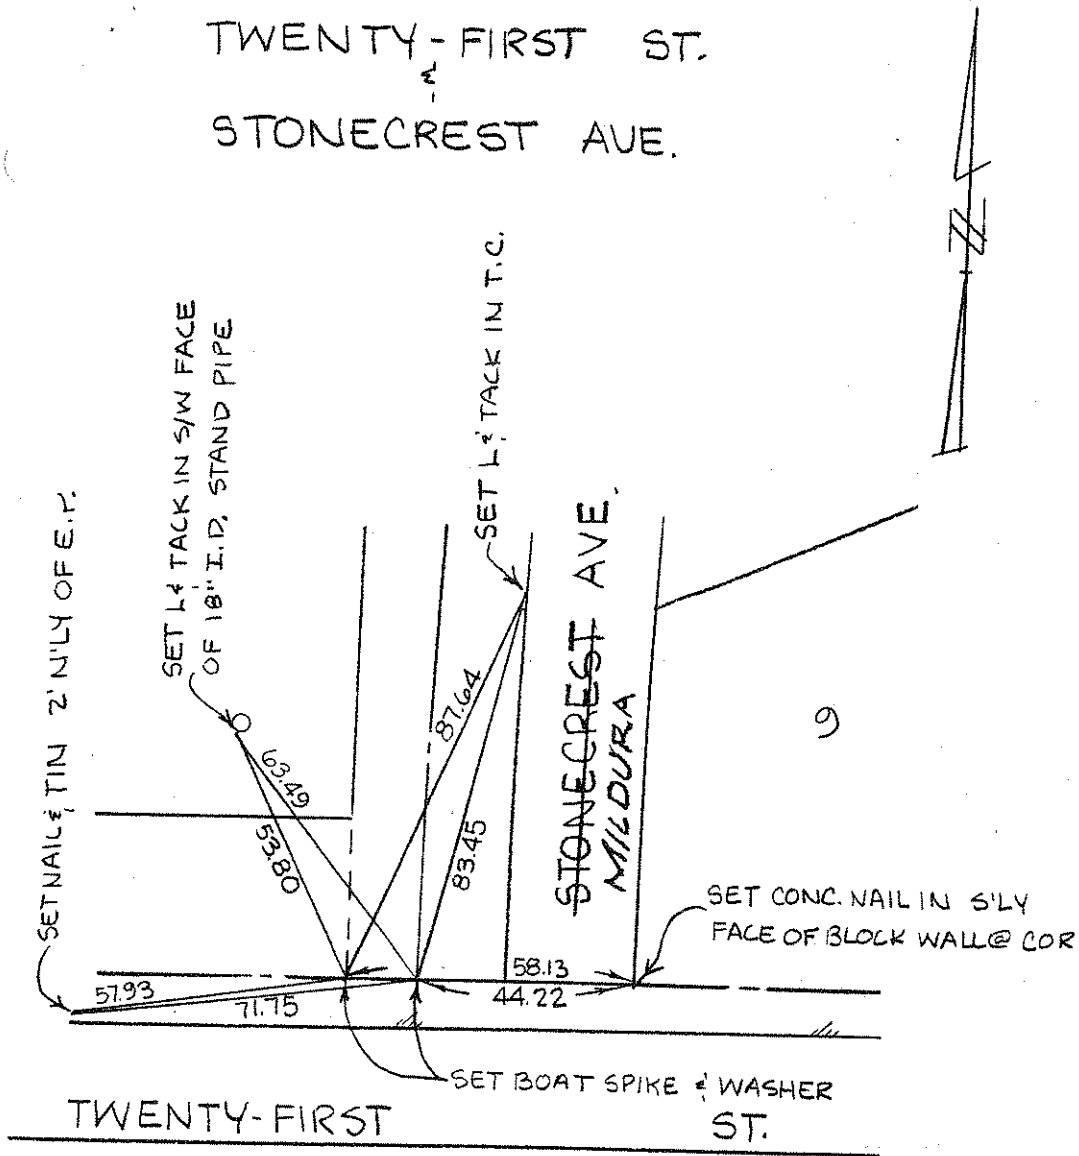 TWENTY-FIRST ST.
&
STONECREST AVE.
N
SET NAIL & TIN 2' N'LY OF E.P.
SET L & TACK IN S/W FACE
OF 18" I.D. STAND PIPE
SET L & TACK IN T.C.
STONECREST AVE.
MILDURA
9
87.64
63.49
53.80
83.45
SET CONC. NAIL IN S'LY
FACE OF BLOCK WALL @ COR
58.13
57.93
44.22
71.75
SET BOAT SPIKE & WASHER
TWENTY-FIRST ST.